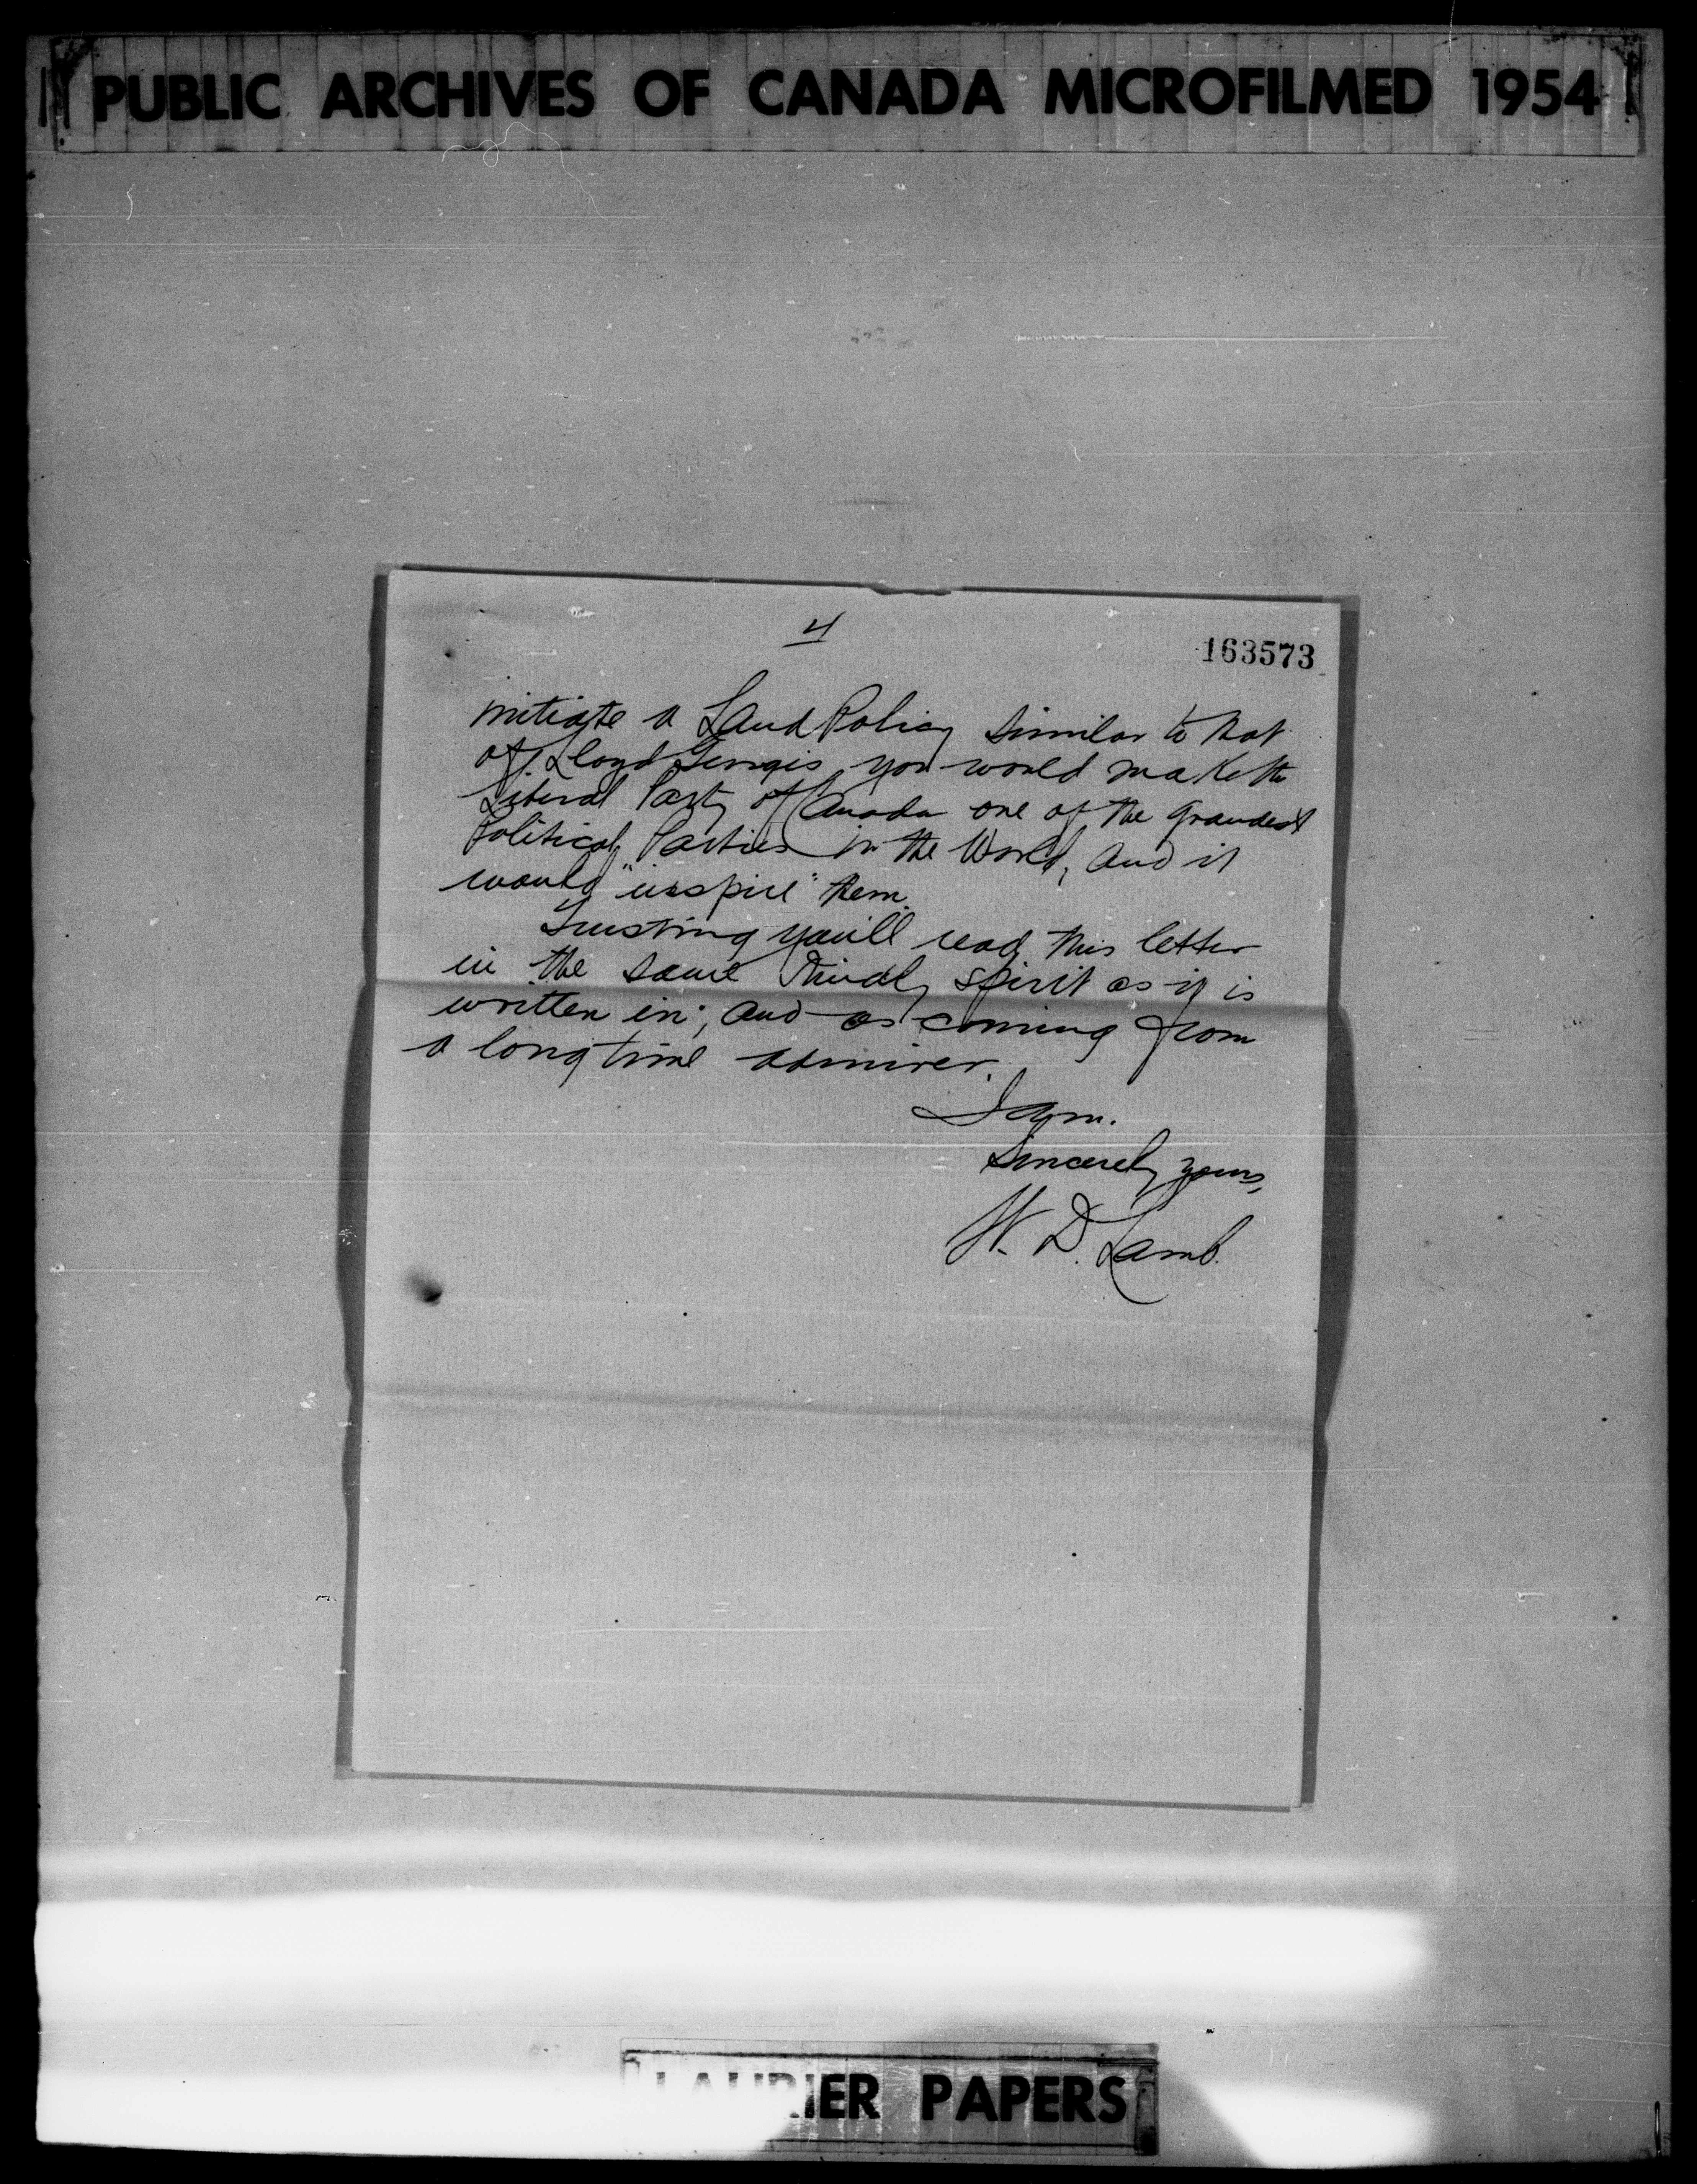 PUBLIC ARCHIVES OF CANADA MICROFILMED 1954
4
163573
initiate a Land Policy similar to that
of Lloyd Georges you would make the
Liberal Party of Canada one of the grandest
Political Parties in the World, and it
would "inspire" them.
Trusting you'll read this letter
in the same kindly spirit as it is
written in; and as coming from
a long time admirer.
I am.
Sincerely yours,
W. D. Lamb.
LAURIER PAPERS